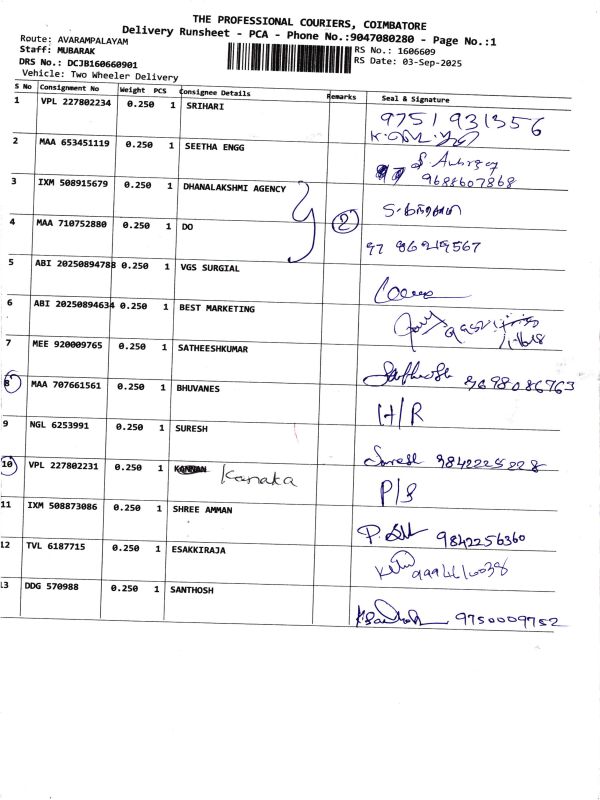 THE PROFESSIONAL COURIERS, COIMBATORE
Delivery Runsheet - PCA - Phone No.:9047080280 - Page No.:1
Route: AVARAMPALAYAM
Staff: MUBARAK
RS No.: 1606609
DRS No.: DCJB160660901
RS Date: 03-Sep-2025
Vehicle: Two Wheeler Delivery
S No Consignment No Weight PCS Consignee Details Remarks Seal & Signature
1 VPL 227802234 0.250 1 SRIHARI 9751931356
2 MAA 653451119 0.250 1 SEETHA ENGG
9688607868
3 IXM 508915679 0.250 1 DHANALAKSHMI AGENCY
2
4 MAA 710752880 0.250 1 DO
5 ABI 20250894788 0.250 1 VGS SURGIAL
6 ABI 20250894634 0.250 1 BEST MARKETING
7 MEE 920009765 0.250 1 SATHEESHKUMAR
9698086763
8 MAA 707661561 0.250 1 BHUVANES H/R
9 NGL 6253991 0.250 1 SURESH
Suresh 9842225228
10 VPL 227802231 0.250 1 KANNAN Kanaka P/S
11 IXM 508873086 0.250 1 SHREE AMMAN
9842256360
12 TVL 6187715 0.250 1 ESAKKIRAJA
13 DDG 570988 0.250 1 SANTHOSH
9750009752